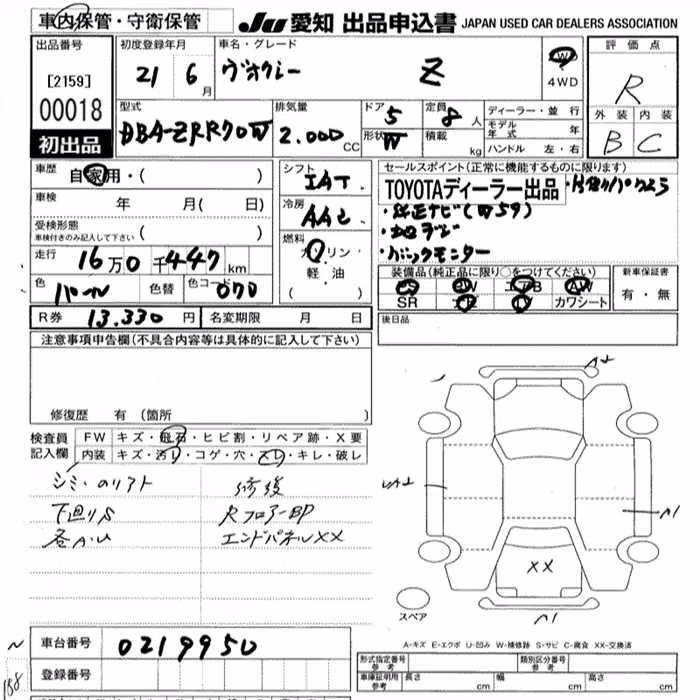 車内保管・守衛保管
JU 愛知 出品申込書 JAPAN USED CAR DEALERS ASSOCIATION
出品番号
[2159]
00018
初出品
初度登録年月
21 6月
車名・グレード
ヴォクシー Z
4WD
評価点
R
外装 内装
B C
型式
DBA-ZRR70W
排気量
2.000cc
ドア 5
形状 W
定員 8人
積載 kg
ディーラー・並行
モデル年式 年
ハンドル 左・右
車歴 自家用・( )
車検 年 月( 日)
受検形態
車検付きのみ記入して下さい ( )
走行 16万0千447km
色 パール 色替 色コード 070
シフト IAT
冷房 AAC
燃料
ガソリン・
軽油
( )
セールスポイント(正常に機能するものに限ります)
TOYOTAディーラー出品
・純正ナビ(W59)
・地デジ
・バックモニター
装備品(純正品に限り○をつけてください)
PS PW エアB AW
SR TV カワシート
新車保証書
有・無
後日品
R券 13.330円 名変期限 月 日
注意事項申告欄(不具合内容等は具体的に記入して下さい)
修復歴 有 (箇所 )
検査員記入欄
FW キズ・飛石・ヒビ割・リペア跡・X要
内装 キズ・汚れ・コゲ・穴・スレ・キレ・破レ
下回りS
各A・U
修後
RフロアーBP
エンドパネルXX
A2
UA2
A1
XX
A1
スペア
A-キズ E-エクボ U-凹み W-補修跡 S-サビ C-腐食 XX-交換済
車台番号 0219950
登録番号
形式指定番号 参考
類別区分番号 参考
車庫証明用 参考 長さ cm 幅 cm 高さ cm
188